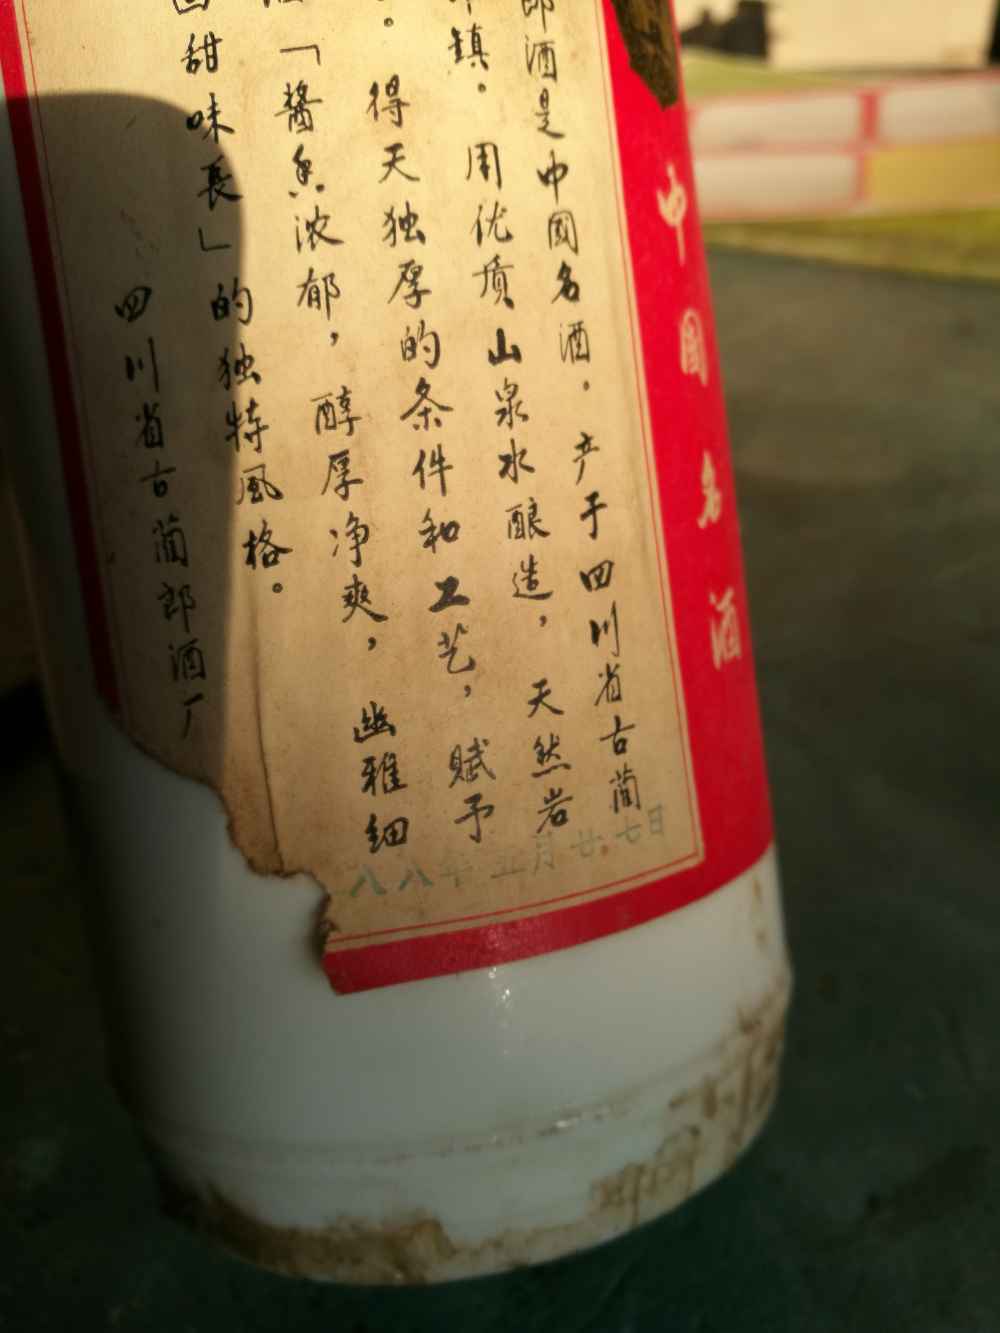 中國名酒
郎酒是中國名酒。产于四川省古蔺
镇。用优质山泉水酿造，天然岩
。得天独厚的条件和工艺，赋予
「醬香浓郁，醇厚净爽，幽雅细
回甜味長」的独特風格。
四川省古蔺郎酒厂
八八年五月廿七日